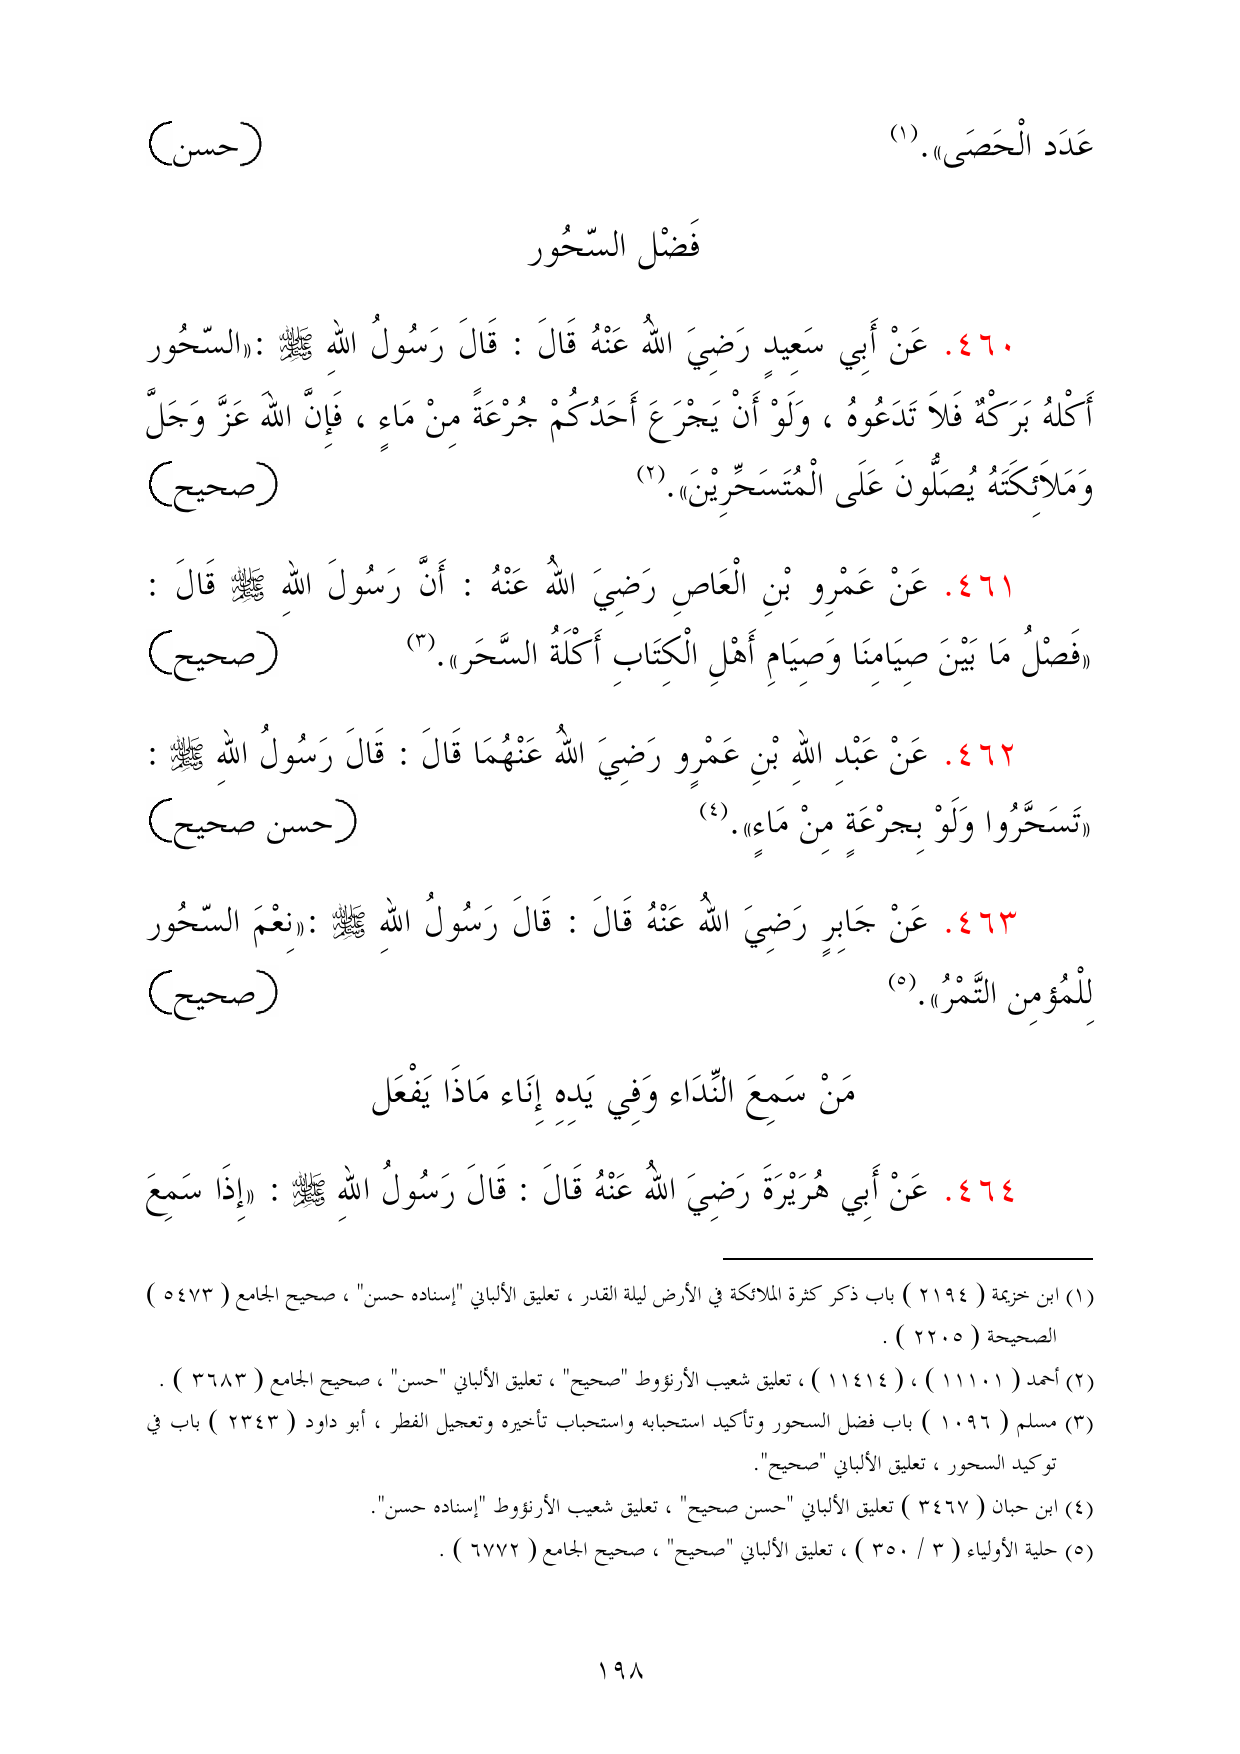 عَدَد الْحَصَى».(١) (حسن)
فَضْل السّحُور
٤٦٠. عَنْ أَبِي سَعِيدٍ رَضِيَ اللهُ عَنْهُ قَالَ : قَالَ رَسُولُ اللهِ ﷺ :«السّحُور
أَكْلهُ بَرَكْهٌ فَلاَ تَدَعُوهُ ، وَلَوْ أَنْ يَجْرَعَ أَحَدُكُمْ جُرْعَةً مِنْ مَاءٍ ، فَإِنَّ اللهَ عَزَّ وَجَلَّ
وَمَلاَئِكَتَهُ يُصَلُّونَ عَلَى الْمُتَسَحِّرِيْنَ».(٢) (صحيح)
٤٦١. عَنْ عَمْرِو بْنِ الْعَاصِ رَضِيَ اللهُ عَنْهُ : أَنَّ رَسُولَ اللهِ ﷺ قَالَ :
«فَصْلُ مَا بَيْنَ صِيَامِنَا وَصِيَامِ أَهْلِ الْكِتَابِ أَكْلَةُ السَّحَر».(٣) (صحيح)
٤٦٢. عَنْ عَبْدِ اللهِ بْنِ عَمْرٍو رَضِيَ اللهُ عَنْهُمَا قَالَ : قَالَ رَسُولُ اللهِ ﷺ :
«تَسَحَّرُوا وَلَوْ بِجرْعَةٍ مِنْ مَاءٍ».(٤) (حسن صحيح)
٤٦٣. عَنْ جَابِرٍ رَضِيَ اللهُ عَنْهُ قَالَ : قَالَ رَسُولُ اللهِ ﷺ :«نِعْمَ السّحُور
لِلْمُؤمِن التَّمْرُ».(٥) (صحيح)
مَنْ سَمِعَ النِّدَاء وَفِي يَدِهِ إِنَاء مَاذَا يَفْعَل
٤٦٤. عَنْ أَبِي هُرَيْرَةَ رَضِيَ اللهُ عَنْهُ قَالَ : قَالَ رَسُولُ اللهِ ﷺ : «إِذَا سَمِعَ
(١) ابن خزيمة ( ٢١٩٤ ) باب ذكر كثرة الملائكة في الأرض ليلة القدر ، تعليق الألباني "إسناده حسن" ، صحيح الجامع ( ٥٤٧٣ )
الصحيحة ( ٢٢٠٥ ) .
(٢) أحمد ( ١١١٠١ ) ، ( ١١٤١٤ ) ، تعليق شعيب الأرنؤوط "صحيح" ، تعليق الألباني "حسن" ، صحيح الجامع ( ٣٦٨٣ ) .
(٣) مسلم ( ١٠٩٦ ) باب فضل السحور وتأكيد استحبابه واستحباب تأخيره وتعجيل الفطر ، أبو داود ( ٢٣٤٣ ) باب في
توكيد السحور ، تعليق الألباني "صحيح".
(٤) ابن حبان ( ٣٤٦٧ ) تعليق الألباني "حسن صحيح" ، تعليق شعيب الأرنؤوط "إسناده حسن".
(٥) حلية الأولياء ( ٣ / ٣٥٠ ) ، تعليق الألباني "صحيح" ، صحيح الجامع ( ٦٧٧٢ ) .
١٩٨